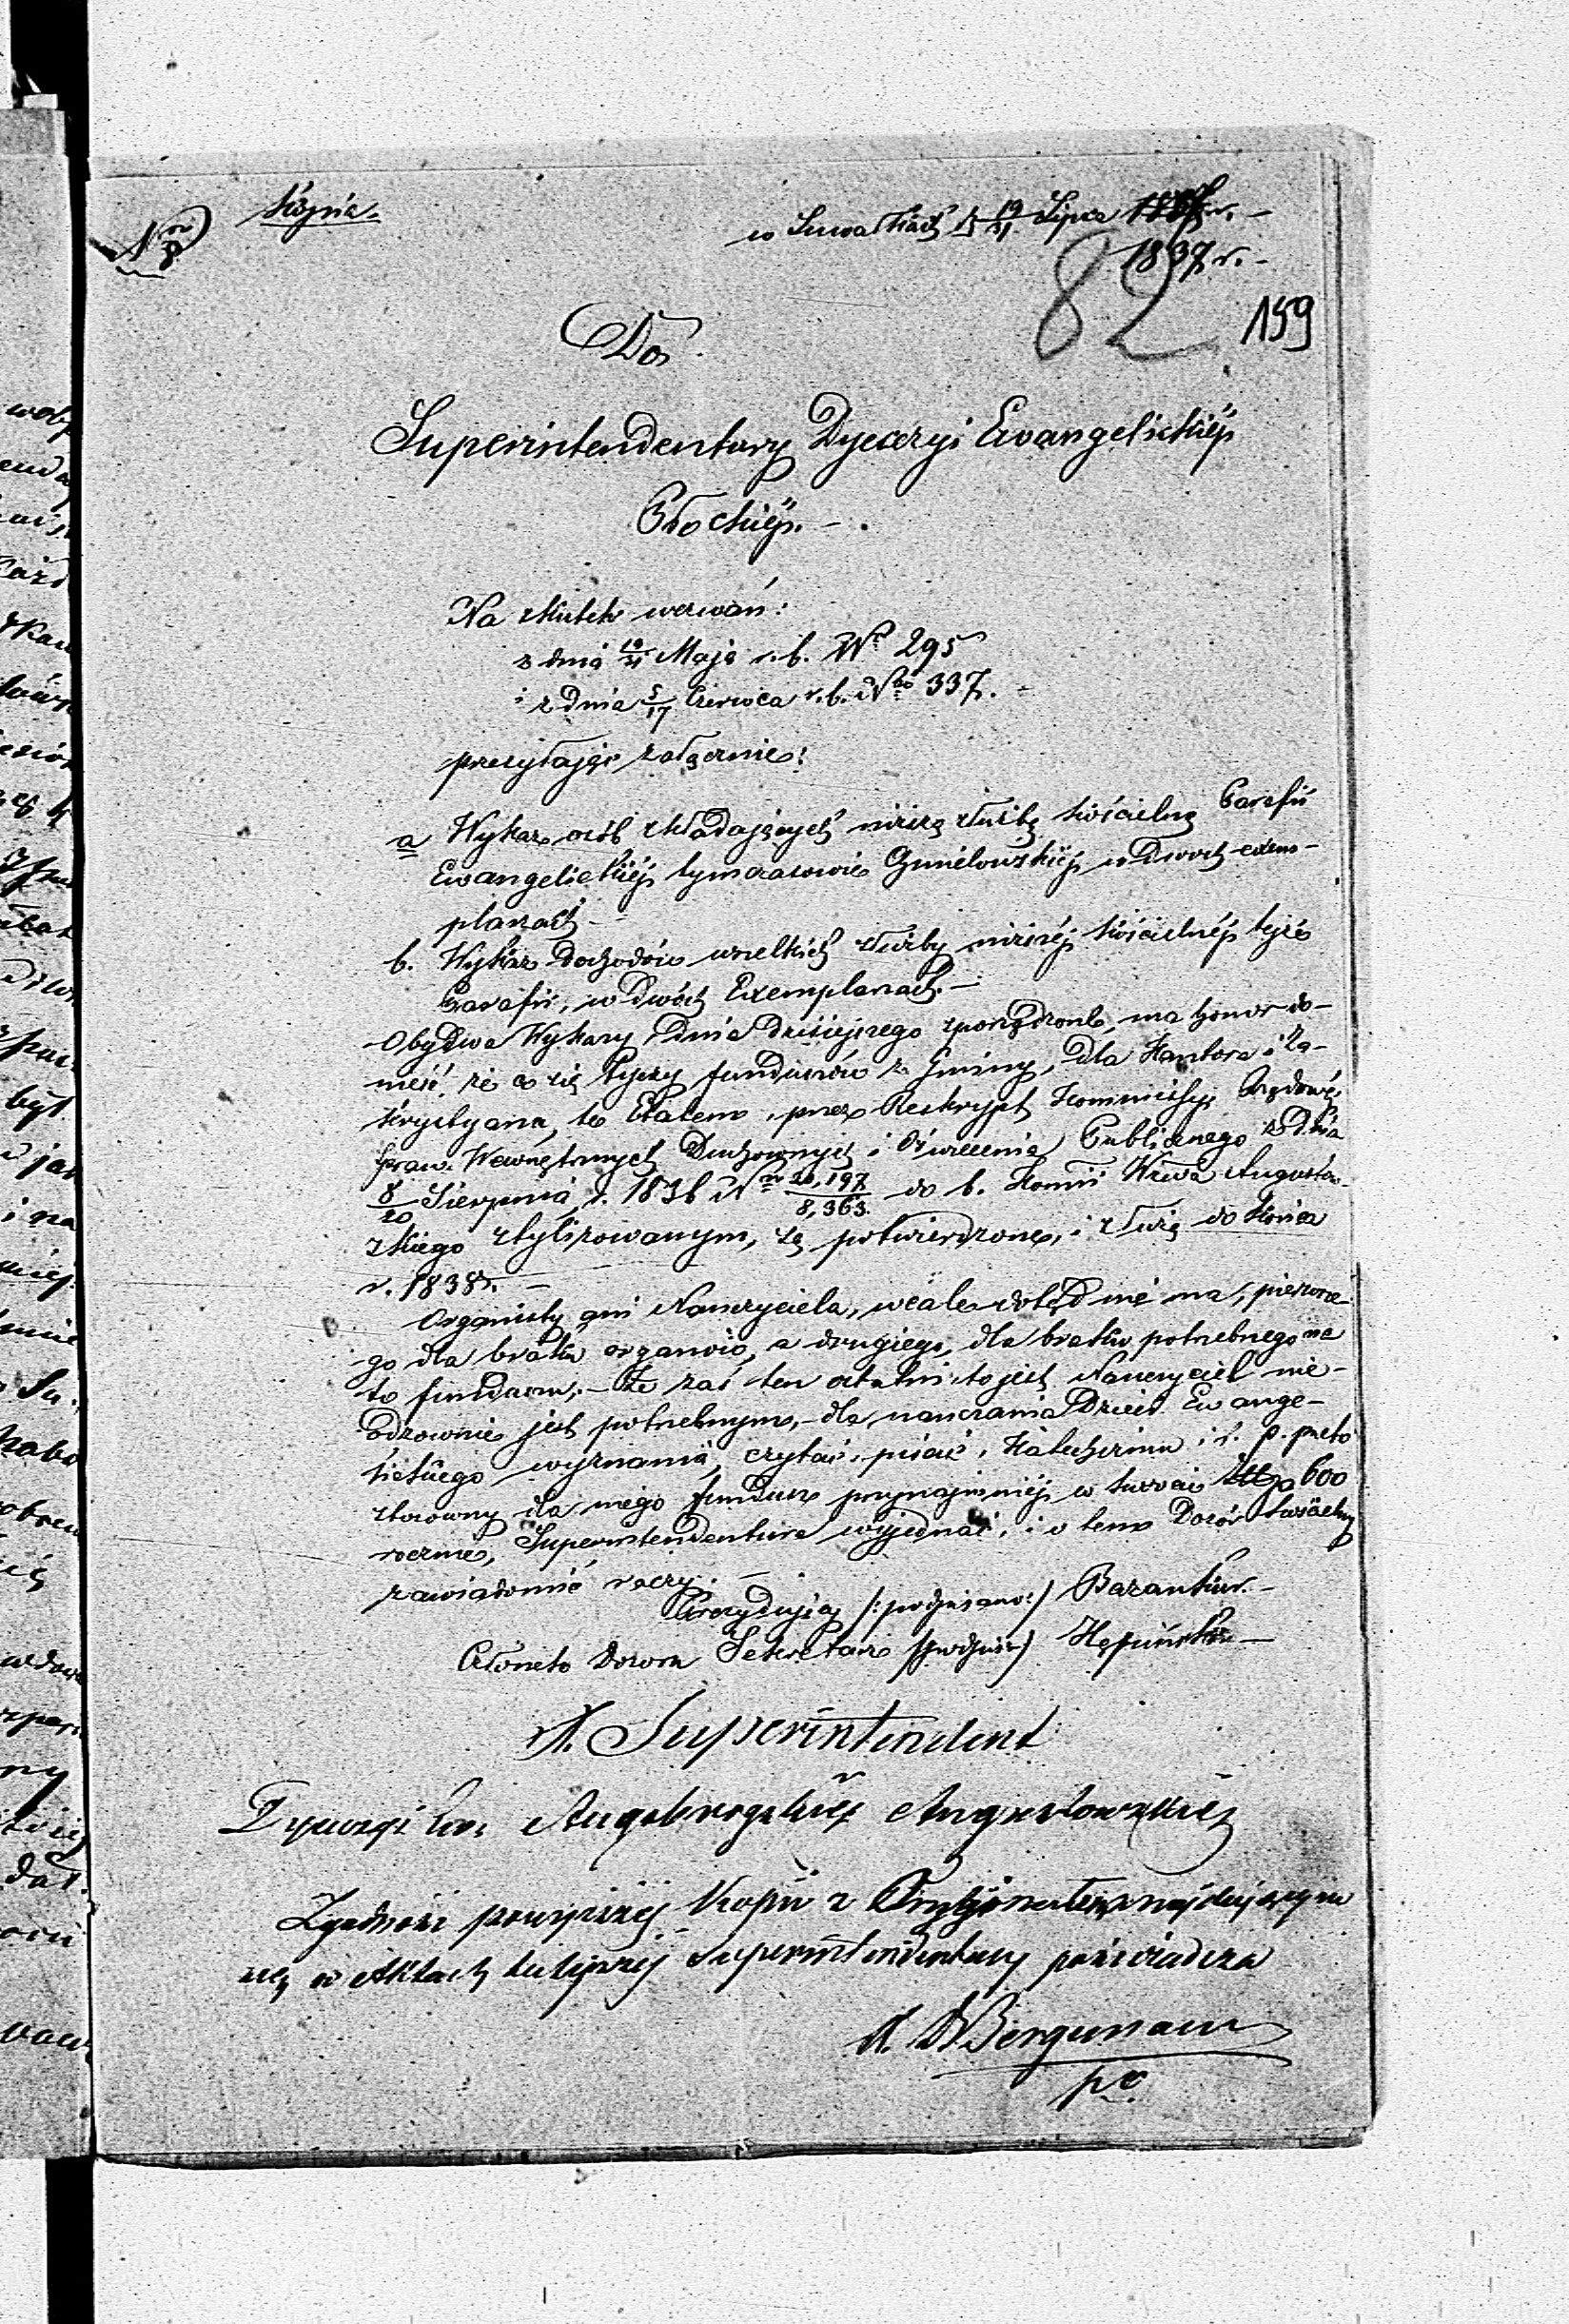 Kopia.
Nro 8
w Suwałkach d. 19/31 Lipca
1837 r. -
82
159
Do
Superintendentury Dyecezyi Ewangelickiéj
Płockiéj. -
Na skutek wezwań:
z dnia 19/31 Maja r. b. Nr 295
i z dnia 5/17 Czerwca r. b. Nro 337. -
przesyłając załącznie:
a Wykaz osób składających niższą służbę kościelną Parafii
Ewangelickiéj tymczasowie w dwóch exem-
plarzach -
b. Wykaz dochodów wszelkich służby niższéj kościelnéj tejże
Parafii, w dwóch Exemplarzach. -
Obydwa Wykazy dnia dzisiejszego sporządzone, ma honor do-
nieść że co się tyczy funduszów z Gminy, dla Kantora i Za-
krystyana, te Etatem, przez Reskrypt Kommissyi Rządowéj
Spraw Wewnętrznych Duchownych i Oświecenia Publicznego z dnia
8/20 Sierpnia r. 1836 Nro 20,197/8,363. do b. Kommii Wdzwa Augustow-
skiego stylizowanym, są potwierdzone, i służą do końca
r. 1838. -
Organisty ani Nauczyciela, wcale dotąd nie ma, pierwsze-
go dla braku organów, a drugiego, dla braku potrzebnego na
to funduszu. - Że zaś ten ostatni to jest Nauczyciel nie-
odzownie jest potrzebnym, - dla nauczania Dzieci Ewange-
lickiego wyznania, czytać, pisać, Katechizmu i t. p. przeto
stosowny dla niego fundusz przynajmniéj w kwocie 600
rocznie, Superintendentura wyjednać, i o tem Dozór kościelny
zawiadomić raczy. -
Prezydujący /:podpisano:/ Bazantkier. -
Członek Dozoru Sekretarz /:podpisano/
X. Superintendent
Dyecezyi Ew. Augsburgskiéj Augustowskiéj
Zgodność powyższéj Kopii z Oryginałem znajdującym
się w Aktach tutejszéj Superintendentury poświadcza
X. Bergemann